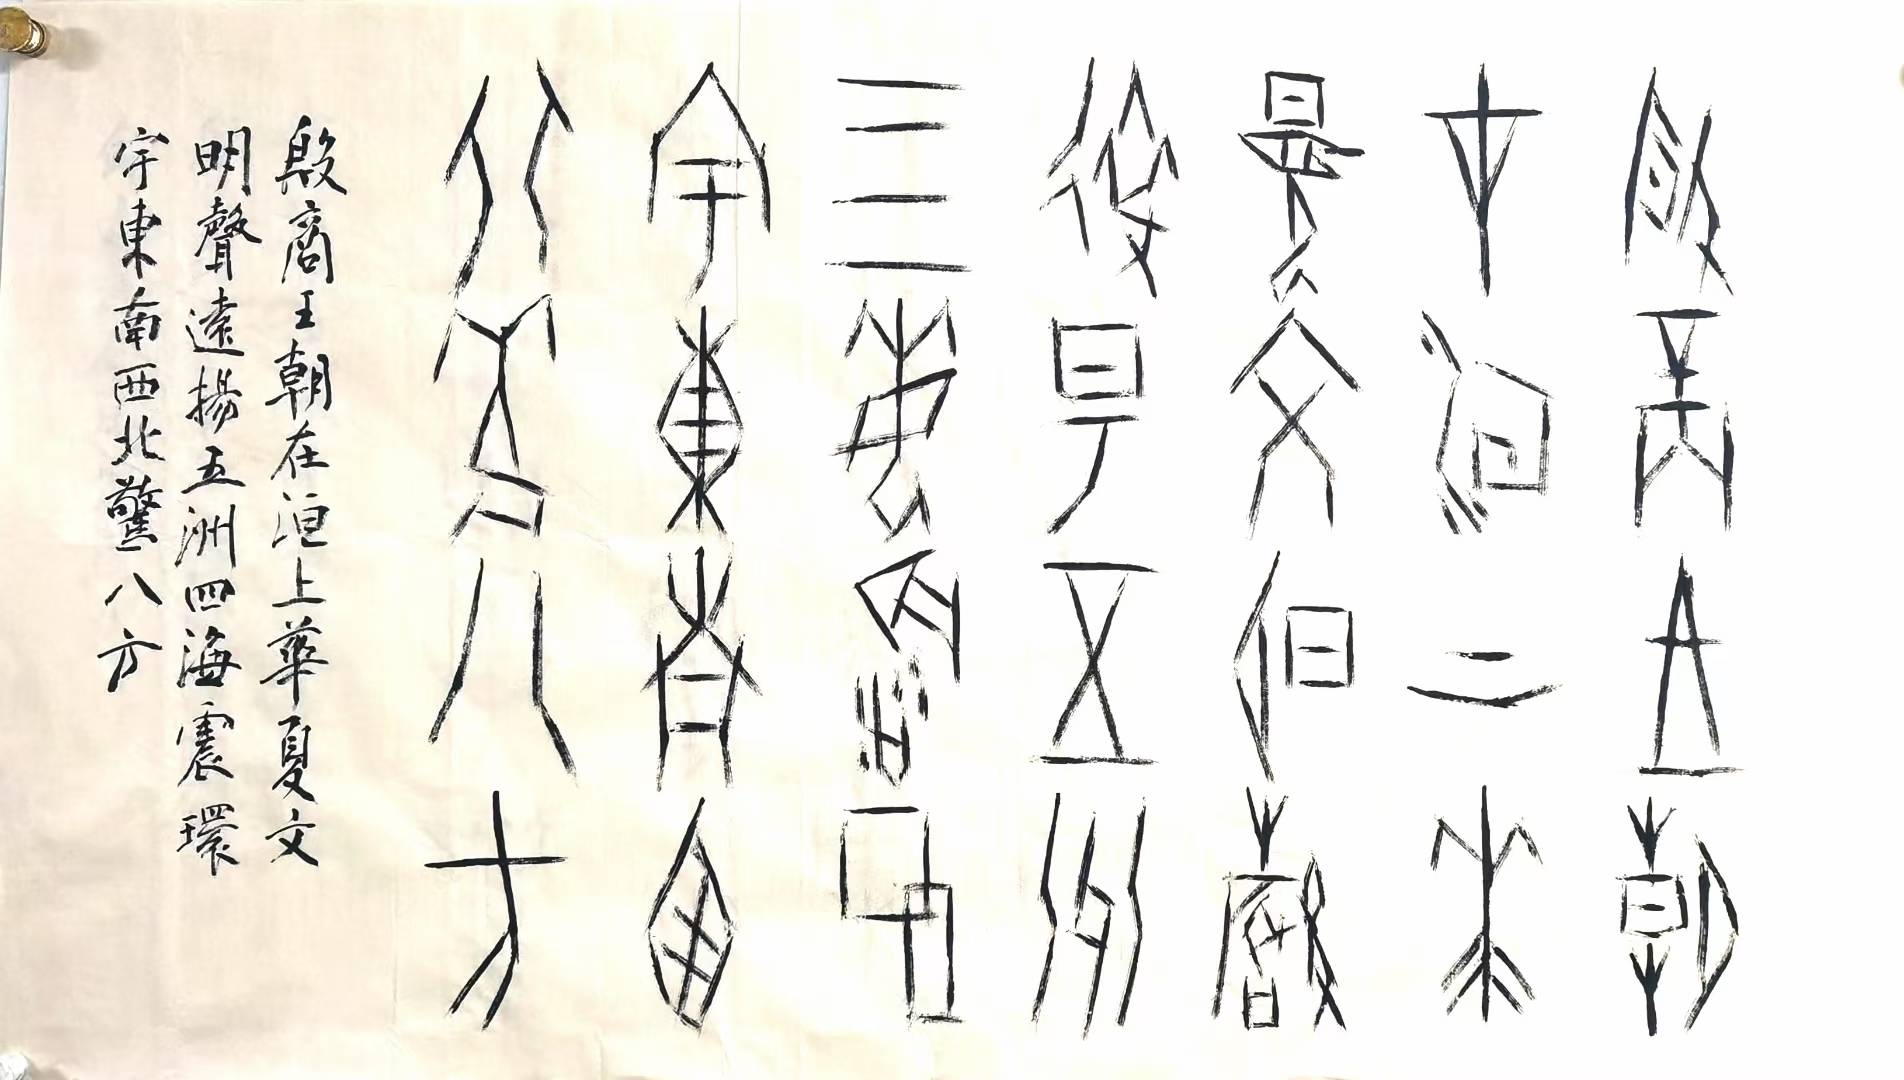 殷商王朝
在洹上華
夏文明聲
遠揚五洲
四海震環
宇東南西
北驚八方
殷商王朝在洹上華夏文
明聲遠揚五洲四海震環
宇東南西北驚八方